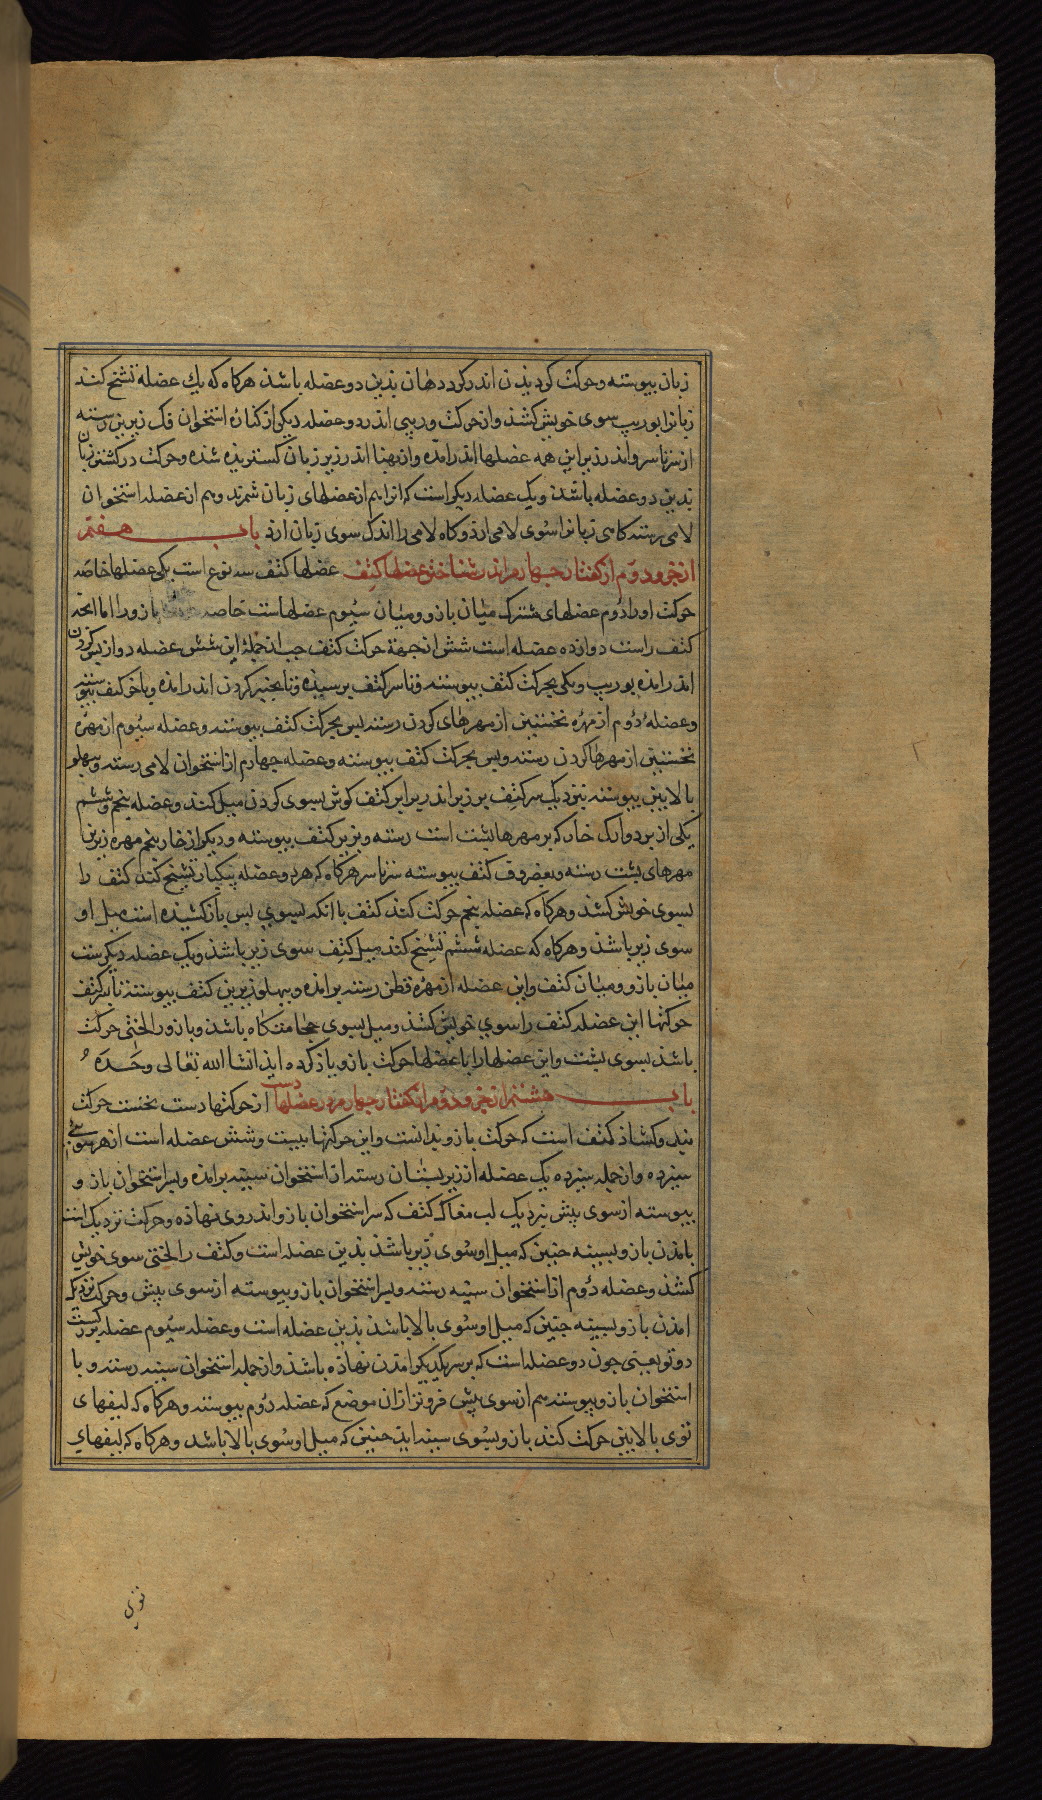 زبان پیوسته و حرکت کردیذن اندر کرد دهان بذین دو عضله باشذ هرکاه که یك عضله تشنج کند
زبانرا بوریب سوی خویش کشذ و از حرکت وریبی اندرد و عضله دیکر از کناره استخوان فک زیرین رسته
از سرتاسر و اندر زیر این همه عضلها اندر امذه و از پهنا اندر زیر زبان کستریذه شذه و حرکت در کشتن زبان
بذین دو عضله باشذ و یک عضله دیکر است که انرا هم از عضلهای زبان شمرند و هم از عضله استخوان
لامی رسته کاهی زبانرا سوی لامی ارذ و کاه لامی را اندک سوی زبان ارذ باب هفتم
از جزو دوم از کفتار جهارم اندر شناختن عضلها کتف عضلها کتف سه نوع است یکی عضلها خاصه
حرکت او را دوم عضلهای مشترک میان بازو و میان سیوم عضلهاست خاصه بازو را اما انجه
کتف راست دوازده عضله است شش از جهة حرکت کتف جب از جملهٔ این شش عضله دو از پس کردن
اندر امذه بوریب و یکی بحرکت کتف پیوسته و تا سر کتف برسیذه و تا بجنبر کردن اندر امذه و باخر کتف پیوسته
و عضلهٔ دوم از مهرهٔ نخستین از مهرهای کردن رسته پس بحرکت کتف پیوسته و عضله سیوم از مهرهٔ
نخستین از مهرها کردن رسته و پس بحرکت کتف پیوسته و عضله جهارم از استخوان لامی رسته و بپهلو
بالایین پیوسته نزدیک سر کتف بر زیر اندر برابر کتف کوش بسوی کردن میل کند و عضله پنجم و ششم
یکی از بر دوانک خار که بر مهرها پشت است رسته و بزیر کتف پیوسته و دیکر از خار پنجم مهره زیرین
مهرهای پشت رسته و بغضروف کتف پیوسته سرتاسر هرکاه که هر دو عضله بیکبار تشنج کند کتف را
بسوی خویش کشذ و هرکاه که عضله پنجم حرکت کند کتف با انکه بسوي پس باز کشیذه است میل او
سوی زیر باشذ و هرکاه که عضله ششم تشنج کند میل کتف سوی زبر باشذ و یک عضله دیکرست
میان بازو و میان کتف و این عضله از مهرهٔ قطن رسته برامذه و بپهلو زیرین کتف پیوسته تا سر کتف
حرکتها این عضله کتف را سوي خویش کشذ و میل بسوی حجامتکاه باشذ و بازو را لختی حرکت
باشذ بسوی پشت و این عضلها را با عضلها حرکت بازو یاذ کرده ایذ انشا الله تعالی وحده
باب هشتم از جزو دوم از کفتار جهارم در عضلها دست از حرکتها دست نخست حرکت
بند و کشاذ کتف است که حرکت بازو بذانست و این حرکتها ببیست و شش عضله است از هر سوی
سیزده و از جمله سیزده یک عضله از زیر پستان رسته از استخوان سینه برامذه و بسر استخوان بازو
پیوسته از سوی پیش نزدیک لب مغاک کتف که سر استخوان بازو اندر وی نهاذه و حرکت نزدیک است
بامذن بازو بسینه جنین که میل او سُوی زیر باشذ بذین عضله است و کتف را لختی سوی خویش
کشذ و عضله دوم از استخوان سینه رسته و بسر استخوان بازو پیوسته از سوی پیش و حرکت نزدیک
امذن بازو بسینه جنین که میل او سُوی بالا باشذ بذین عضله است و عضله سیوم عضله بزرکست
دو تو یعنی جون دو عضله است که بر سر یکدیکر امذن نهاذه باشذ و از جمله استخوان سینه رسته و با
استخوان بازو پیوسته هم از سوی پیش فروتر از ان موضع که عضله دوم پیوسته و هرکاه که لیفهای
توی بالایین حرکت کند بازو بسُوی سینه ایذ جنین که میل او سُوی بالا باشد و هرکاه که لیفهاي
توی